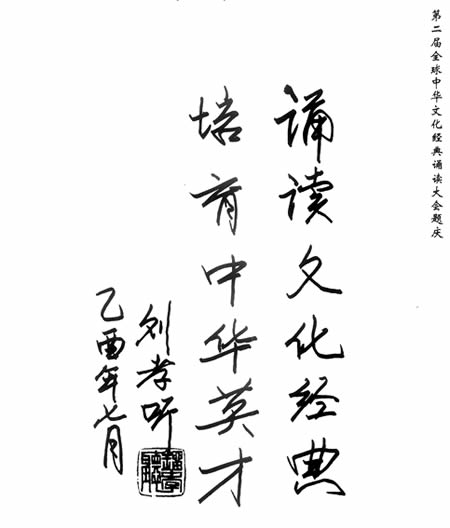 第二届全球中华文化经典诵读大会题庆
诵读文化经典
培育中华英才
刘孝听
乙酉年七月